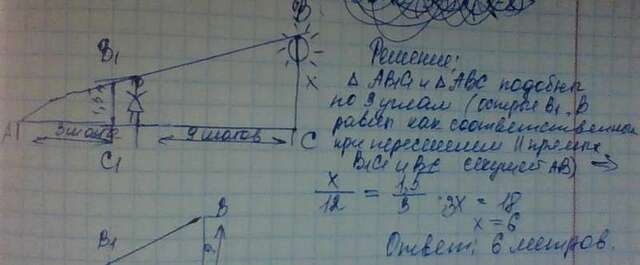 B
B₁
Решение:
△ AB₁C₁ и △ABC подобны
x
по 2 углам (острые B₁, B
1,5
A
3 шага
9 шагов
C
равны как соответственной
C₁
при пересечении || прямых
B₁C₁ и BC секущей AB) ⇒
x/12 = 1,5/3 · 3x = 18
x = 6
B
B₁
Ответ: 6 метров.